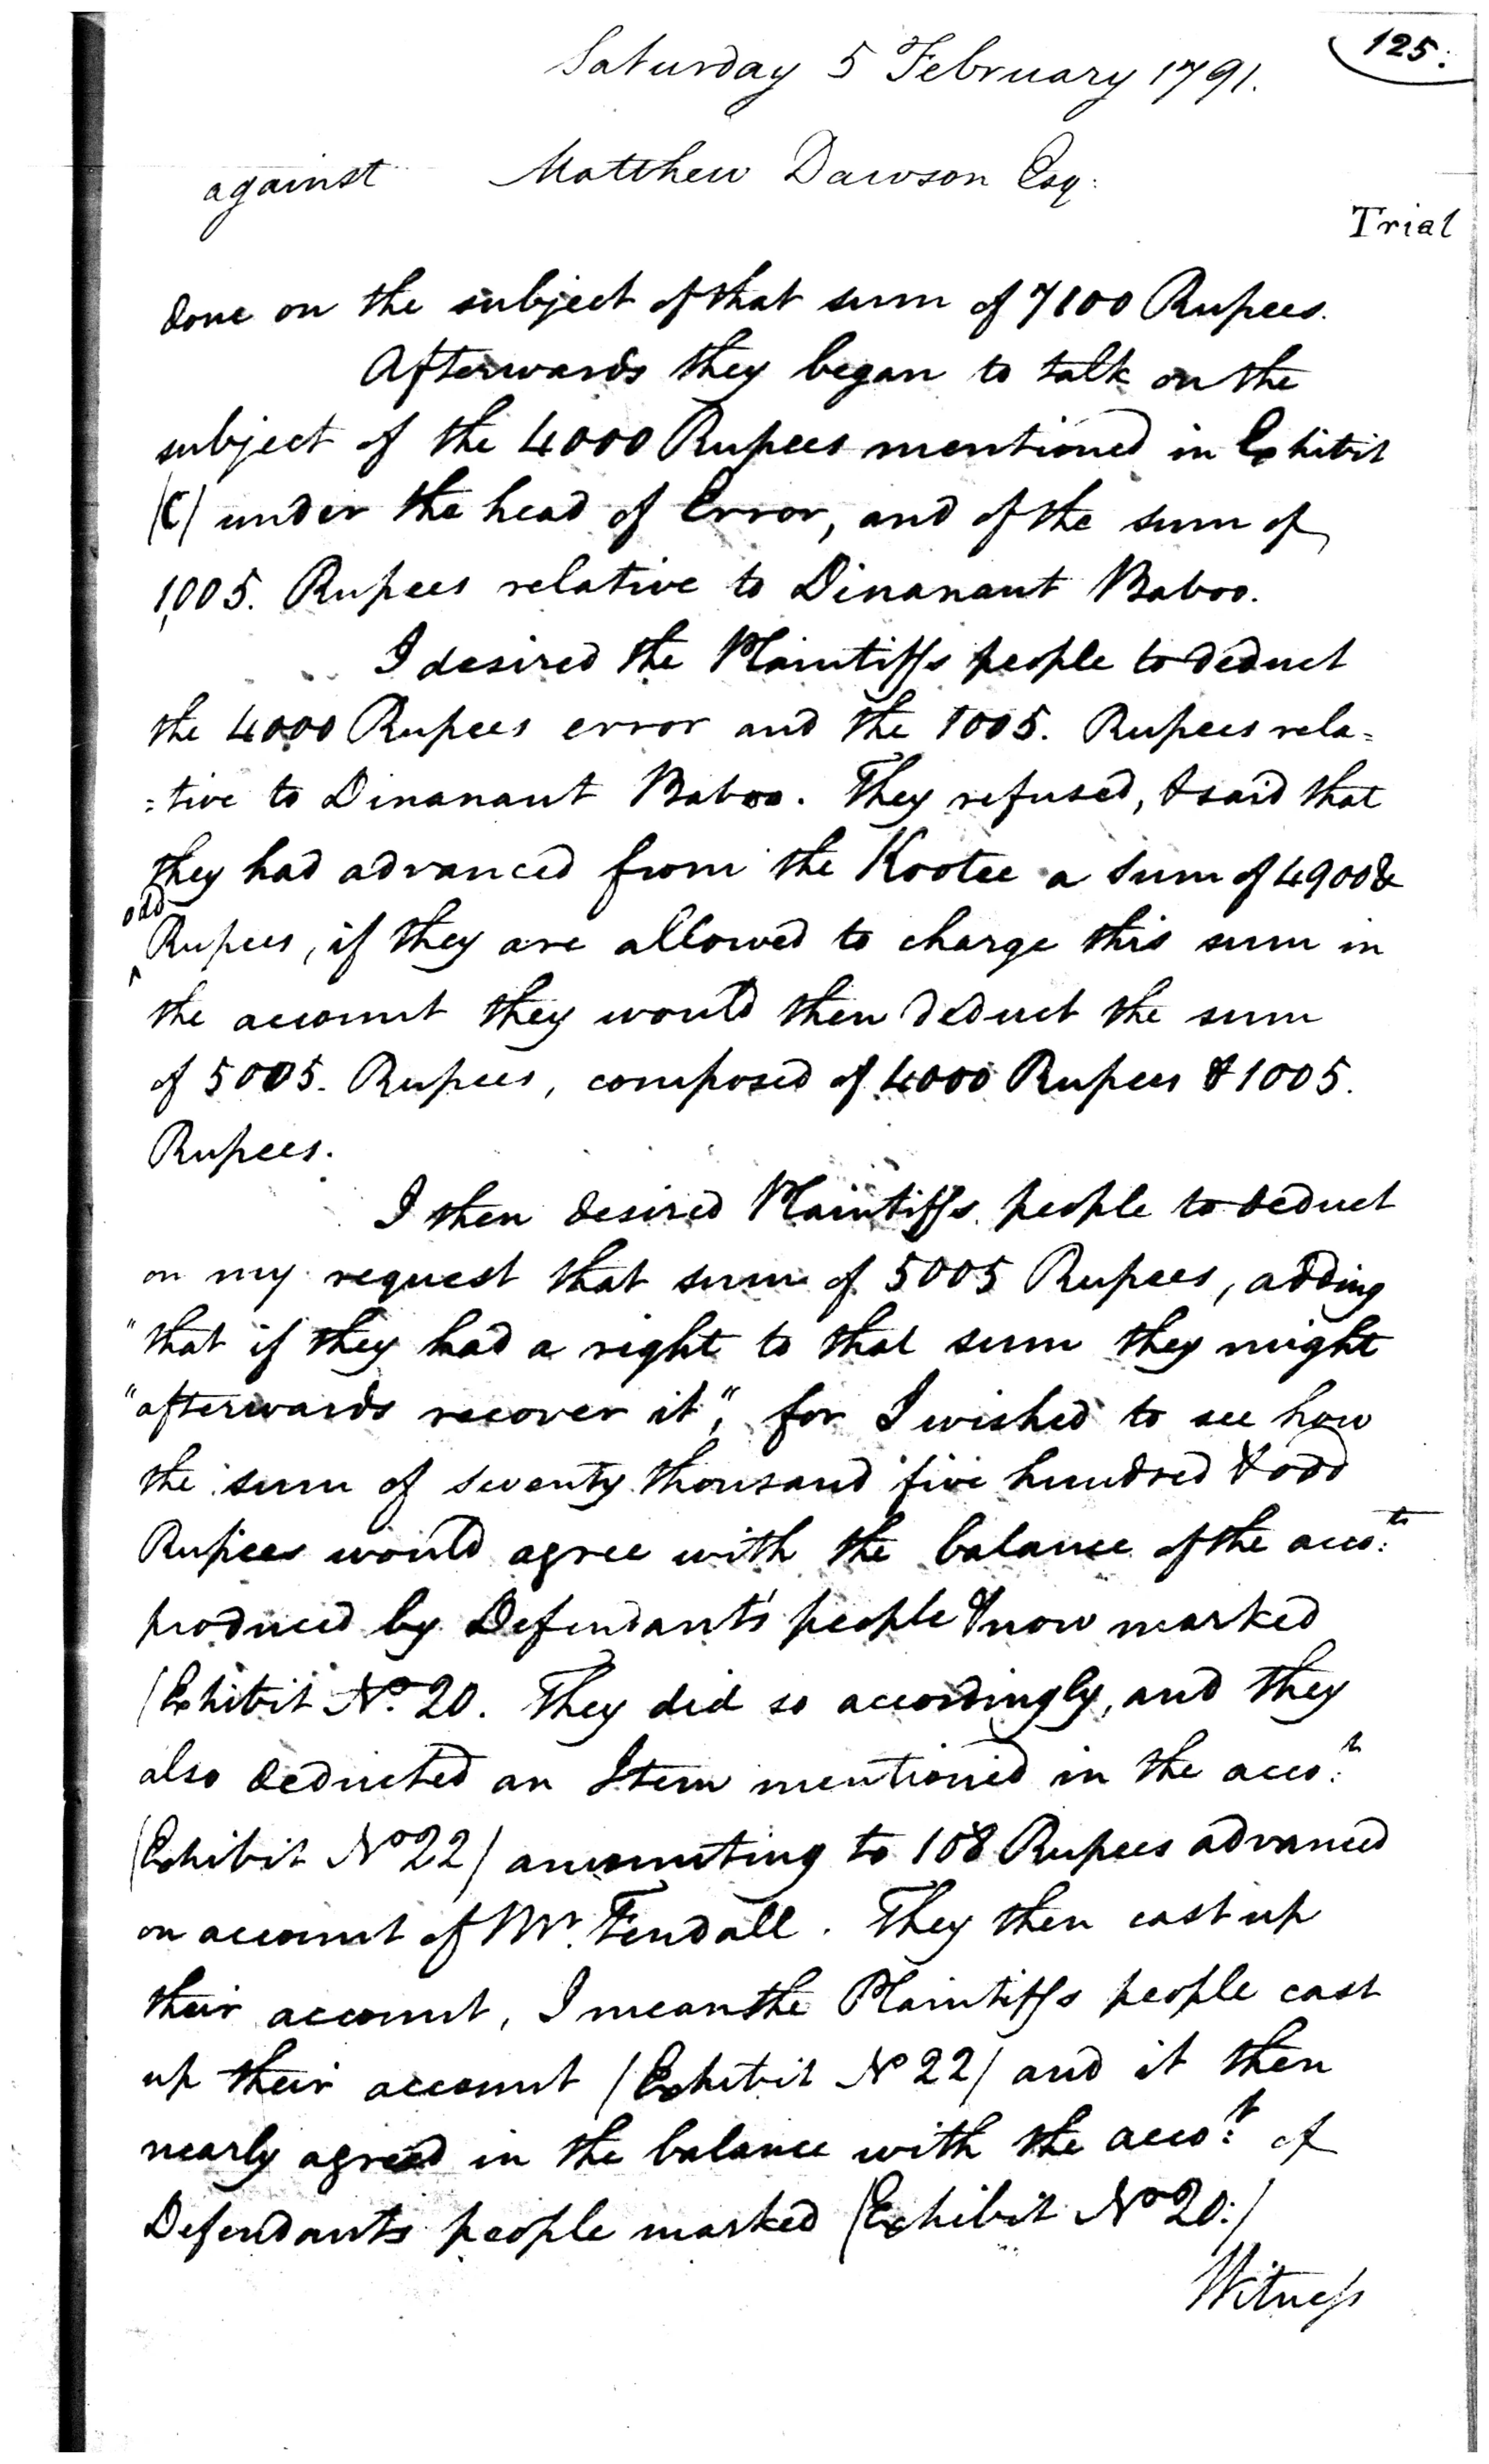 125.
Saturday 5 February 1791.
against Matthew Dawson Esq:
Trial
done on the subject of that sum of 7100 Rupees.
Afterwards they began to talk on the
subject of the 4000 Rupees mentioned in Exhibit
/C/ under the head of Error, and of the sum of
1,005. Rupees relative to Dinanaut Baboo.
I desired the Plaintiffs people to deduct
the 4000 Rupees error and the 1005. Rupees rela=
=tive to Dinanaut Baboo. They refused, & said that
they had advanced from the Kootee a sum of 4900 &
odd
^ Rupees, if they are allowed to charge this sum in
the account they would then deduct the sum
of 5005. Rupees, composed of 4000 Rupees & 1005.
Rupees.
I then desired Plaintiffs people to deduct
on my request that sum of 5005 Rupees, adding
"that if they had a right to that sum they might
"afterwards recover it", for I wished to see how
the sum of seventy thousand five hundred & odd
Rupees would agree with the balance of the acco:ts
produced by Defendants' people & now marked
/Exhibit No. 20. They did so accordingly, and they
also deducted an Item mentioned in the acco:t
/Exhibit No 22/ amounting to 108 Rupees advanced
on account of Mr. Fendall. They then cast up
their account, I mean the Plaintiffs people cast
up their account /Exhibit No 22/ and it then
nearly agreed in the balance with the acco:t of
Defendants people marked /Exhibit No 20:/
Witness